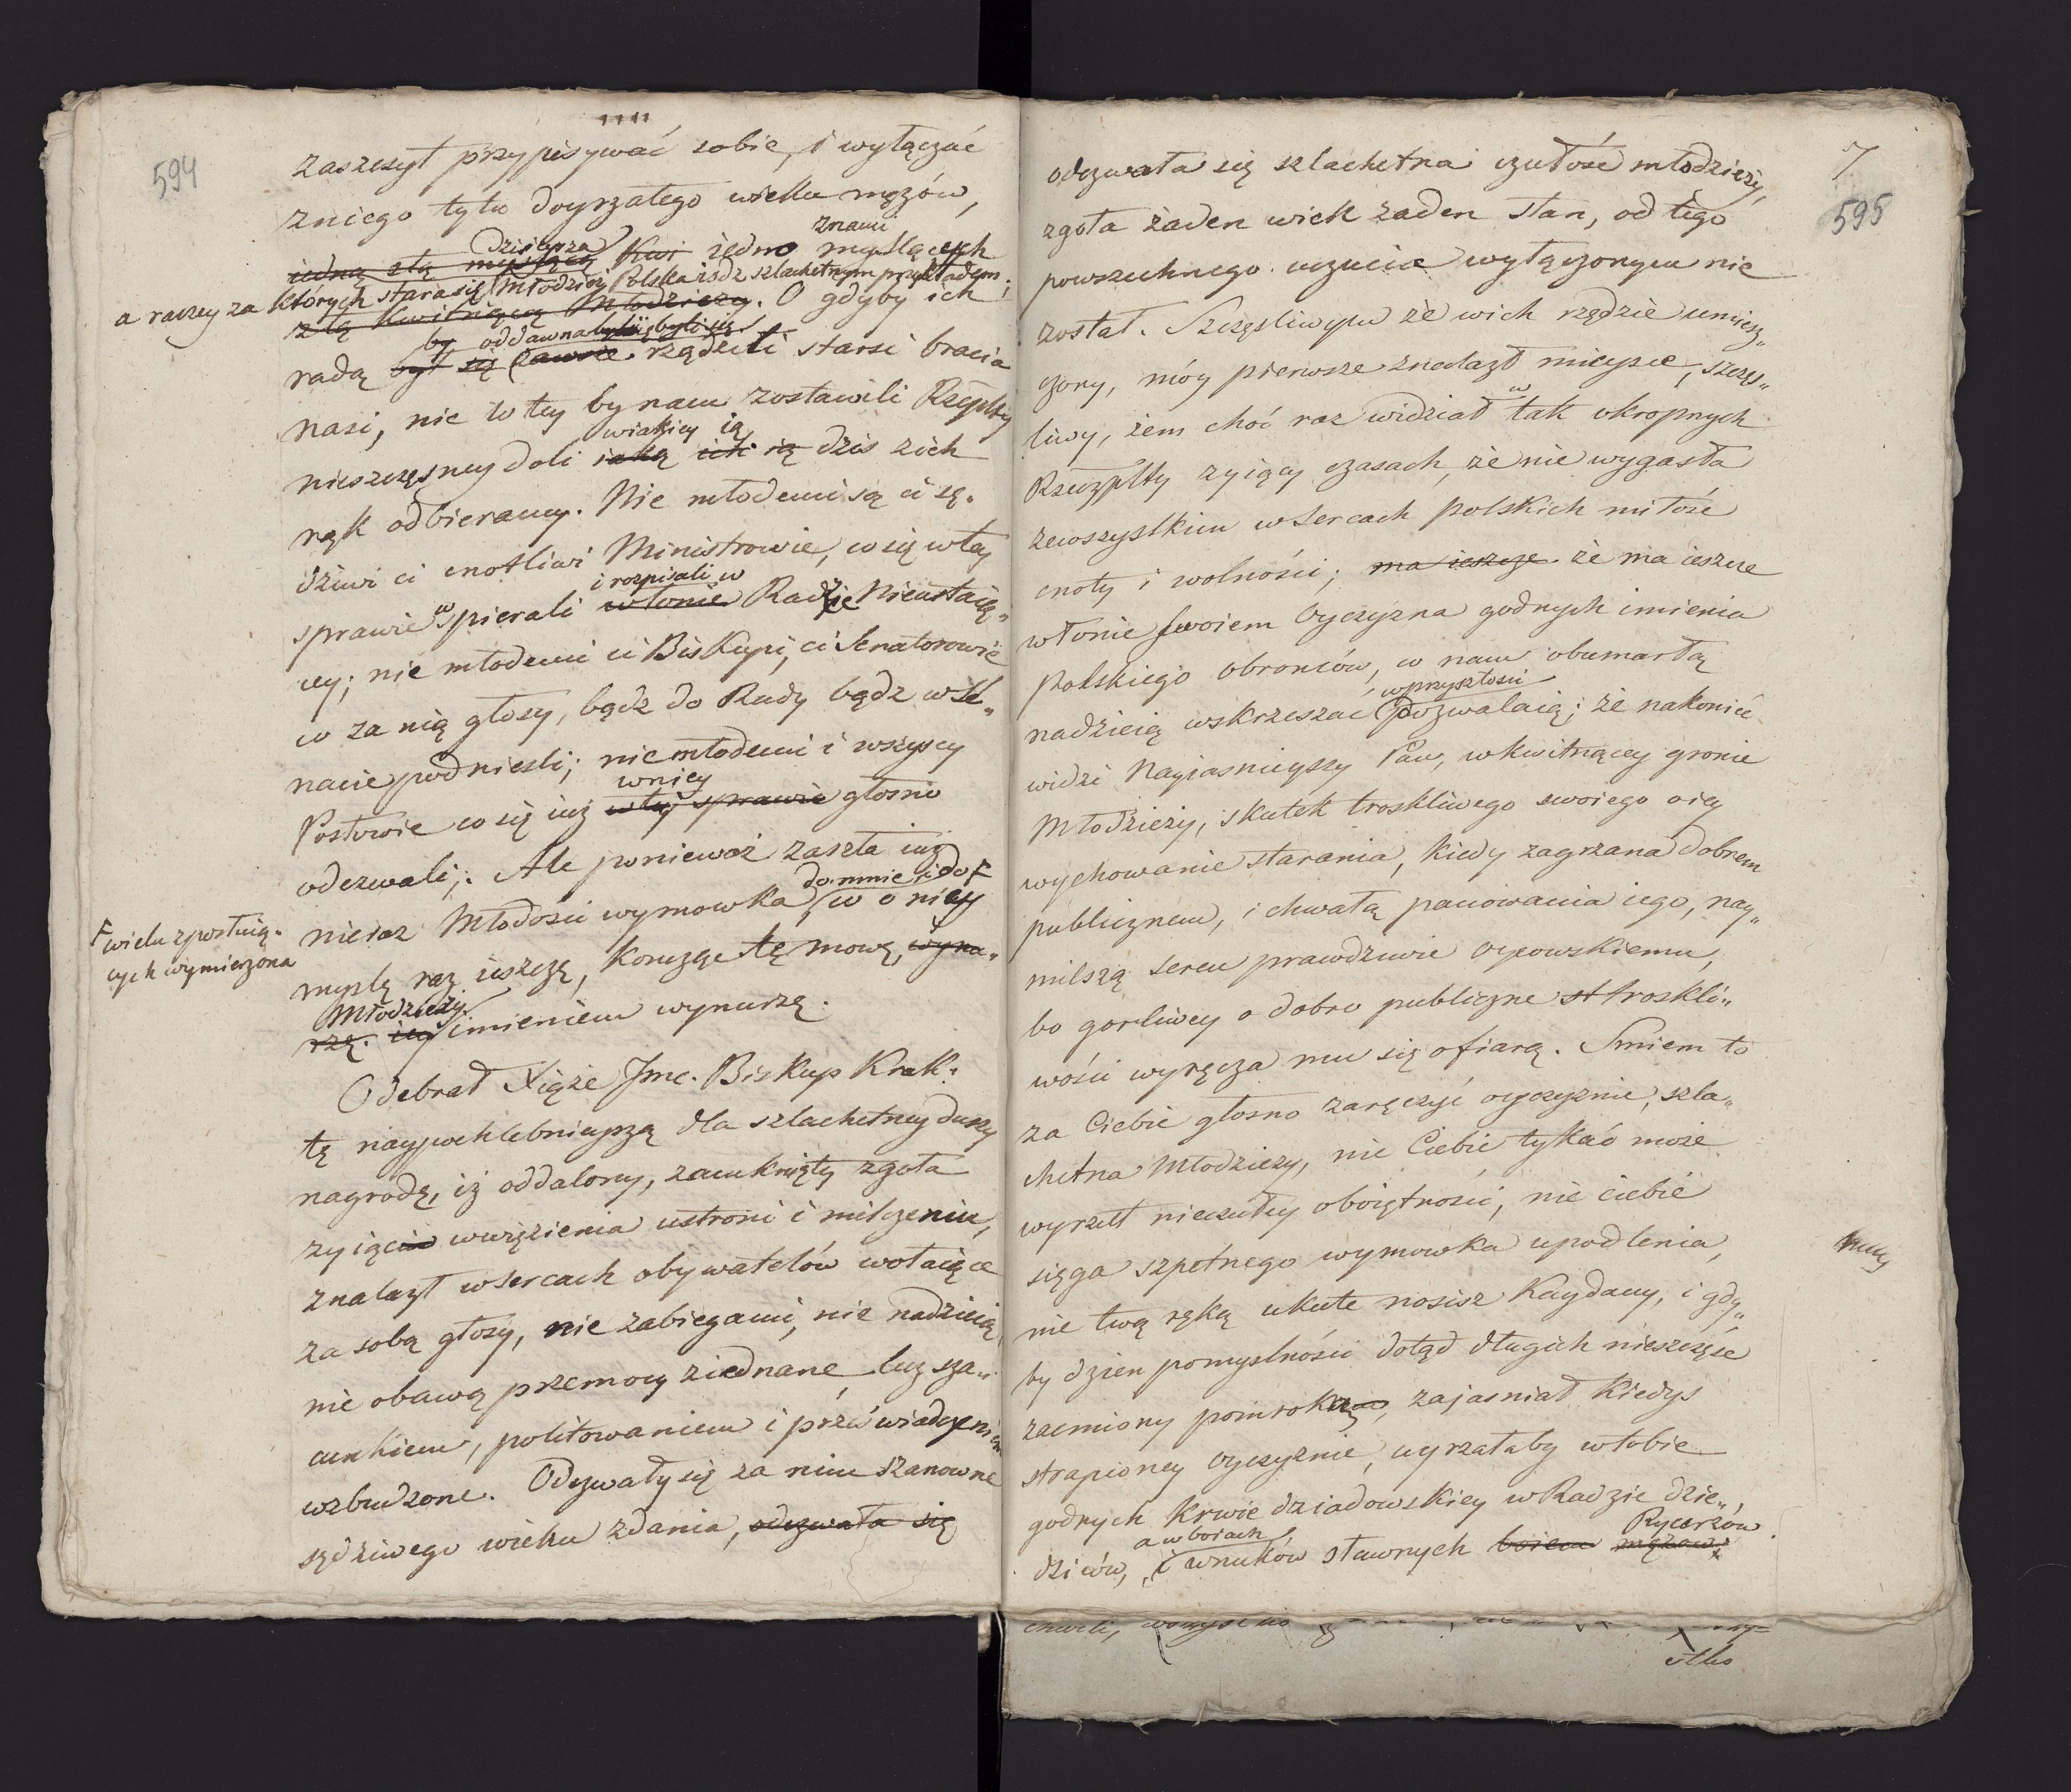 594
zaszczyt przypisywać sobie, i wyłączać
zniego tylu doyrzałego wieku mężów,
znami
dzisieysza
iedną złą myślącą Kwi iedno myślących
a raczey za których stara się Młodzież Polska iśdz szlachetnym przykładem;
z tą kwitnącą Młodzieżą. O gdyby ich
by oddawna byli
radą był się zawsze rządzili starsi bracia
nasi, nie w tey by nam zostawili Rzeplty
wiakiey ią
nieszczęsney doli iaką ich ią dzis zich
rąk odbieramy. Nie młodemi są ci sę-
dziwi ci cnotliwi Ministrowie, co się w tey
i rozpisali w
sprawie wspierali w łonie Radzie Nieustaią„
cey; nie młodemi ci Biskupi, ci Senatorowie
co za nią głosy, bądz do Rady bądz w Se„
nacie podnieśli; nie młodemi i wszyscy
wniey
Posłowie co się iuż w tey sprawie głosno
odezwali;. Ale ponieważ zaszła iuż
do mnie i do F
nieraz Młodości wymowka, co o niey
F wielu zposłuią-
cych wymierzona
myślę raz ieszcze, kończąc tę mowę, wynu„
Młodzieży
rzę. iey imieniem wynurzę.
Odebrał Xiąże Jmc. Biskup Krak.
tę naypochlebnieyszą dla szlachetney duszy
nagrodę, iż oddalony, zamknięty zgoła
zyiący w więzienia ustroni i milczeniu,
znalazł w sercach obywatelów wołaiące
za sobą głosy, nie zabiegami, nie nadzieią
nie obawą przemocy ziednane, lecz sza„
cunkiem, politowaniem i przeświadczeniem
wzbudzone. Odezwały się za nim szanowne
sędziwego wieku zdania, odezwała się
7
595
odezwała się szlachetna czułość młodzieży,
zgoła żaden wiek żaden stan, od tego
powszechnego uczucia wyłączonym nie
został. Szczęśliwym że wich rzędzie umiesz„
czony, móy pierwsze znalazł mieysce, szczęs„
w
liwy, żem choć raz widział tak okropnych
Rzeczyplty zyiący czasach, że nie wygasła
zewszystkim w sercach polskich miłość
cnoty i wolności; ma ieszcze że ma ieszcze
w łonie swoiem Oyczyzna godnych imienia
Polskiego obrońców, co nam obumarłą
wprzyszłosci
nadzieią wskrzeszać pozwalaią; że nakoniec
widzi Nayiasnieyszy Pan, w kwitnącey gronie
Młodzieży, skutek troskliwego swoiego o iey
wychowanie starania, kiedy zagrzana dobrem
publicznem, i chwałą panowania iego, nay„
milszą sercu prawdziwie oycowskiemu,
bo gorliwey o dobro publiczne troskli„
wości wyręcza mu się ofiarą. Smiem to
za Ciebie głosno zaręczyć oyczyznie, szla„
chetna Młodzieży, nie Ciebie tykać może
wyrzut nieczułey oboiętności, nie ciebie
sięga szpetnego wymowka upodlenia,
nie twą ręką ukute nosisz Kaydany, i gdy„
by dzien pomyslności dotąd długich nieszczęść
zacmiony pomroką, zajasniał kiedys
strapioney oyczyznie, uyrzałaby w tobie
godnych krwie dziadowskiey w Radzie dzie„
Rycerzów.
a w boiach
dziców, i wnuków sławnych boiem mężów
ilko